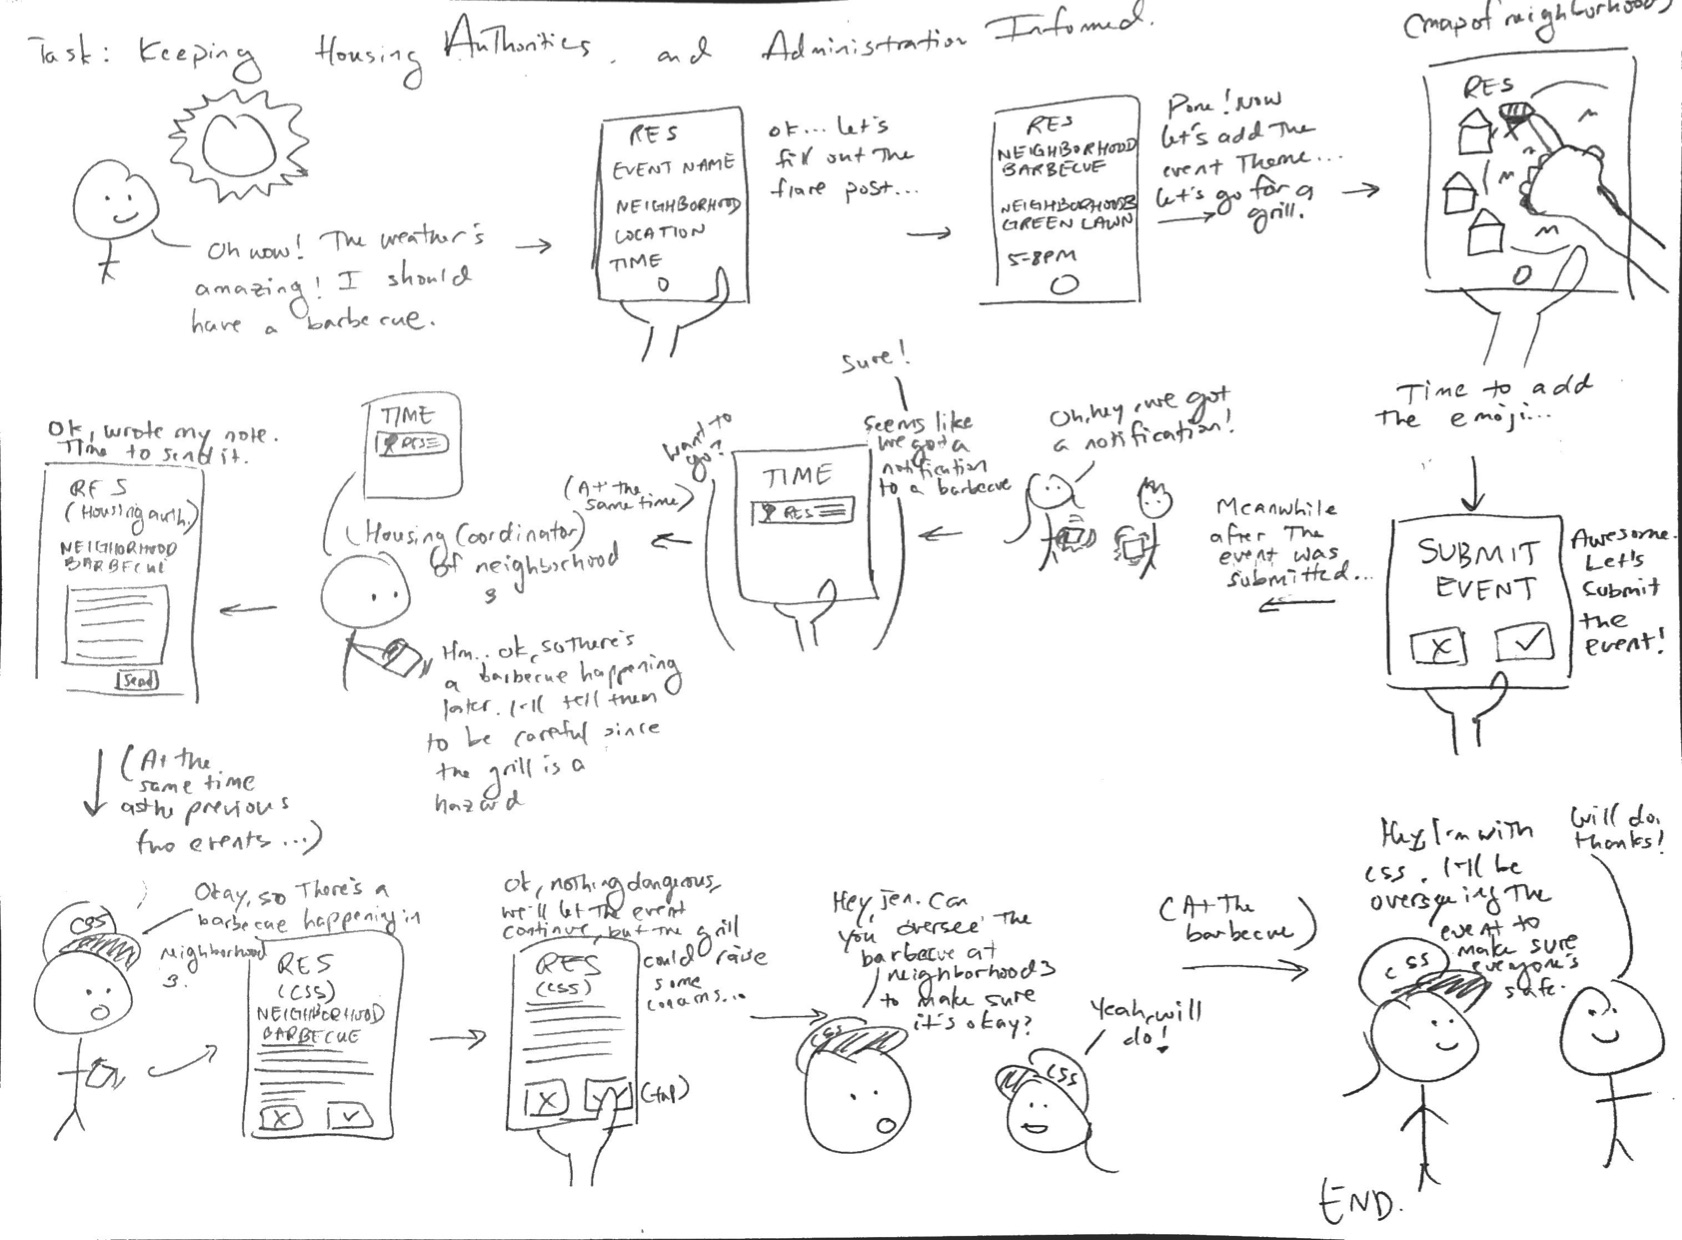 Task: Keeping Housing Authorities, and Administration Informed.
Oh wow! The weather's
amazing! I should
have a barbecue.
RES
EVENT NAME
NEIGHBORHOOD
LOCATION
TIME
ok... let's
fill out the
flare post...
RES
NEIGHBORHOOD
BARBECUE
NEIGHBORHOOD 3
GREEN LAWN
5-8PM
Done! Now
let's add the
event theme...
let's go for a
grill.
(map of neighborhood)
RES
Time to add
the emoji...
SUBMIT
EVENT
X
Awesome.
Let's
submit
the
event!
Meanwhile
after the
event was
submitted...
Oh, hey, we got
a notification!
Sure!
Seems like
we got a
notification
to a barbecue
Want to
go?
TIME
RES
(At the
same time)
TIME
RES
(Housing Coordinator)
of neighborhood
3
Hm.. ok, so there's
a barbecue happening
later. I'll tell them
to be careful since
the grill is a
hazard
Ok, wrote my note.
Time to send it.
RES
(Housing auth.)
NEIGHBORHOOD
BARBECUE
Send
(At the
same time
as the previous
two events...)
CSS
Okay, so there's a
barbecue happening in
neighborhood
3.
RES
(CSS)
NEIGHBORHOOD
BARBECUE
X
Ok, nothing dangerous,
we'll let the event
continue, but the grill
could raise
some
concerns...
RES
(CSS)
X
(tap)
Hey Jen. Can
you oversee the
barbecue at
neighborhood 3
to make sure
it's okay?
CSS
Yeah, will
do!
CSS
(At the
barbecue)
Hey, I'm with
CSS. I'll be
overseeing the
event to
make sure
everyone's
safe.
CSS
Will do,
thanks!
END.